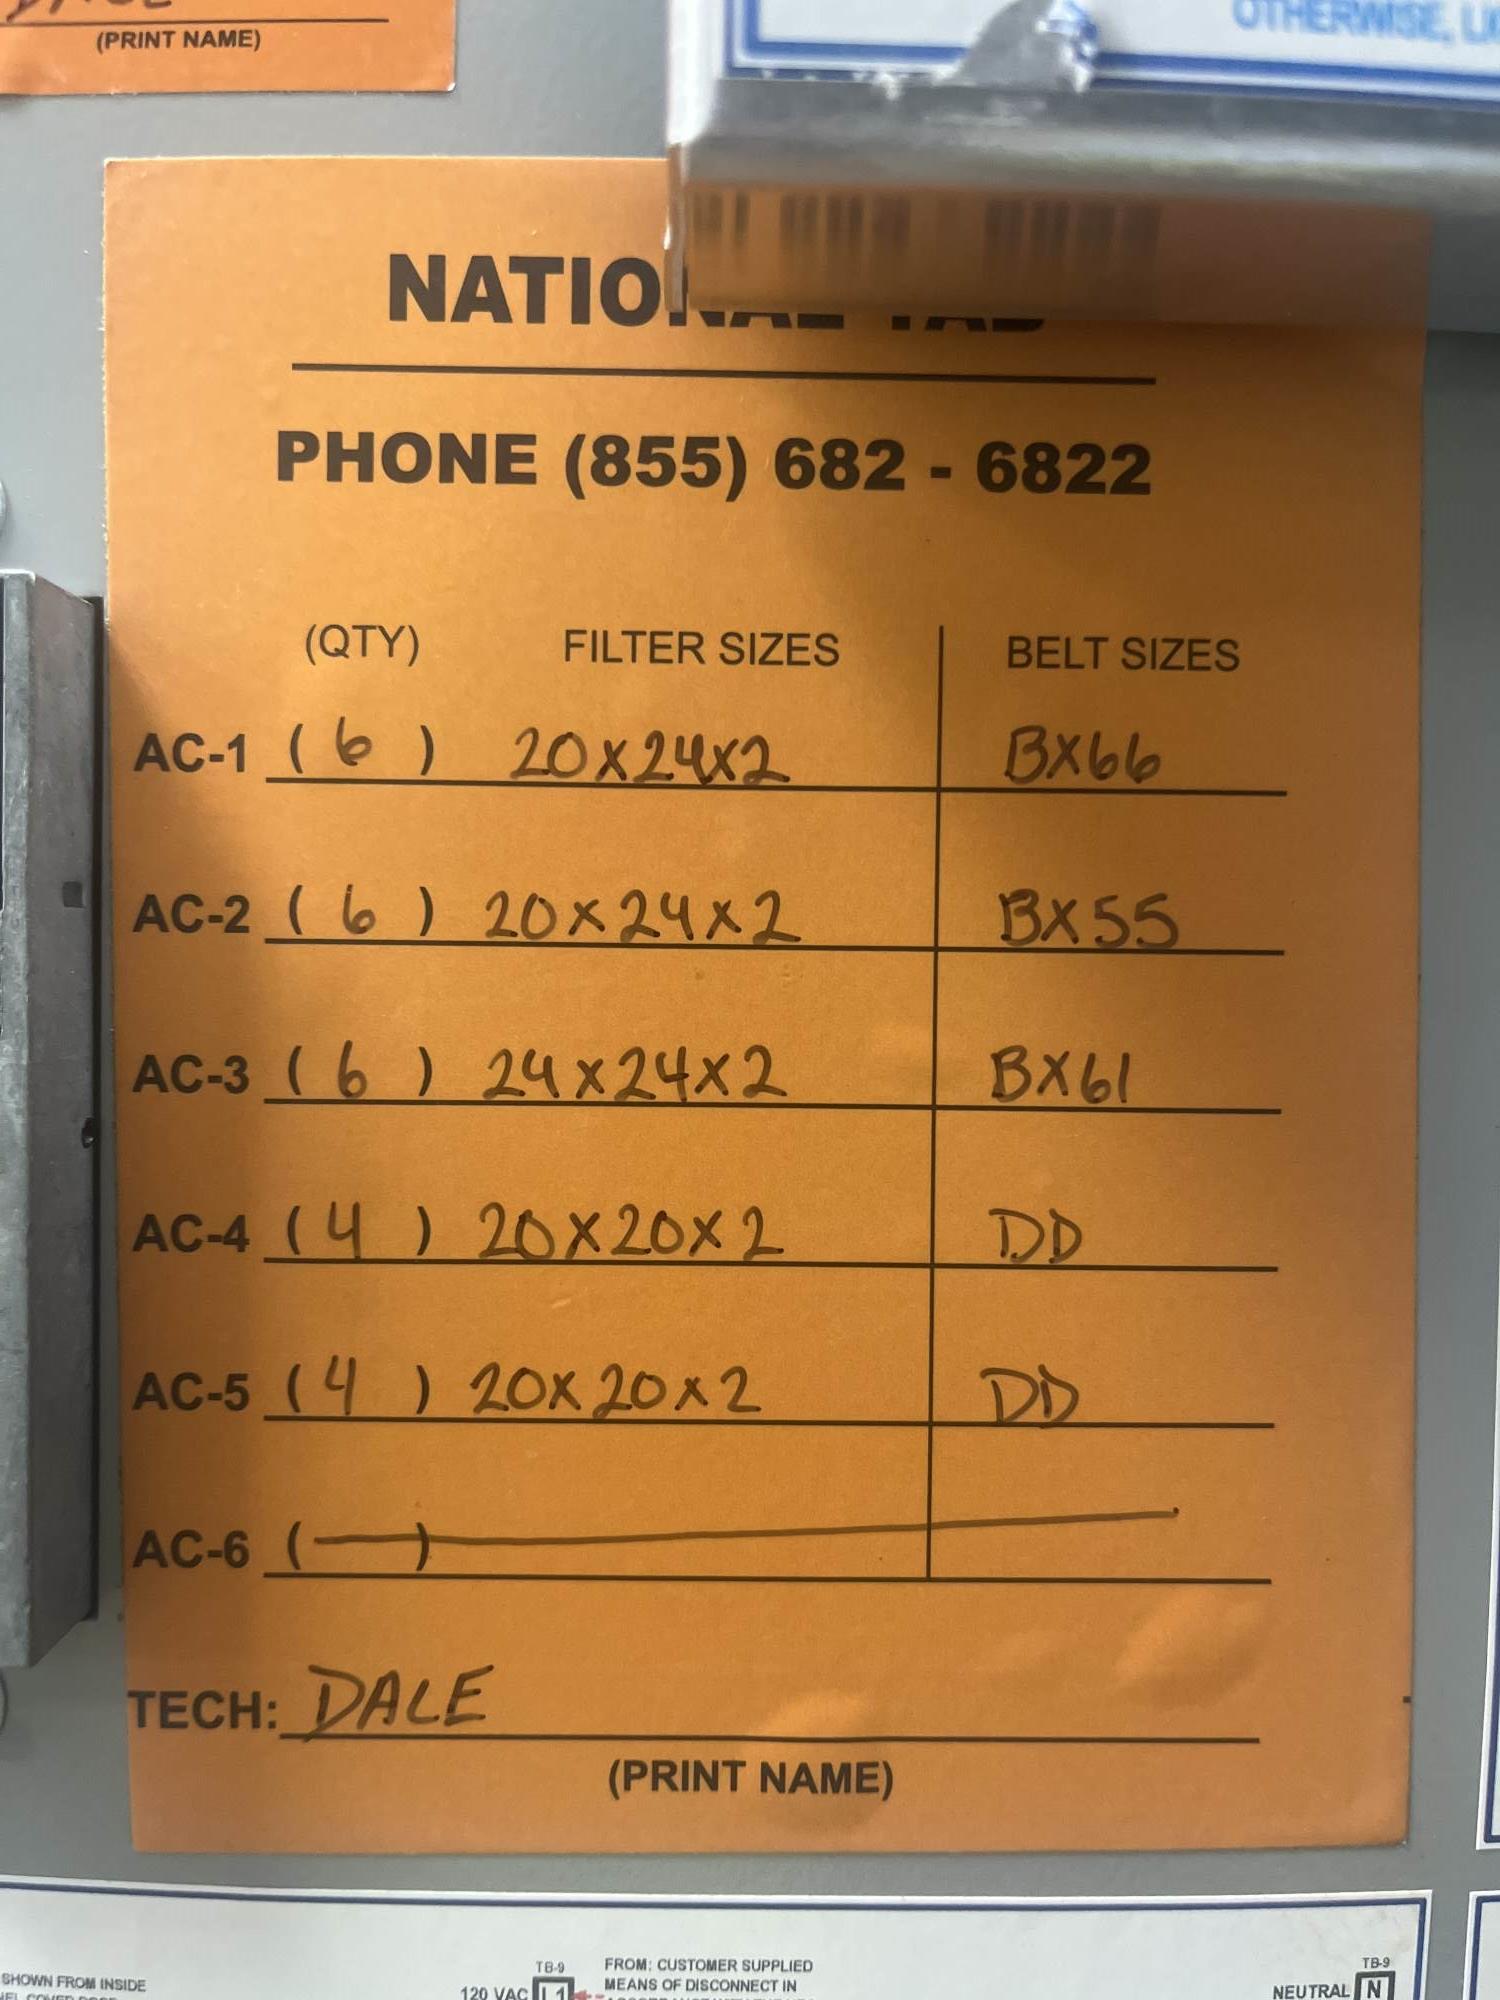 (PRINT NAME)
OTHERWISE,
NATIONAL TAB
PHONE (855) 682 - 6822
(QTY) FILTER SIZES BELT SIZES
AC-1 ( 6 ) 20x24x2 BX66
AC-2 ( 6 ) 20x24x2 BX55
AC-3 ( 6 ) 24x24x2 BX61
AC-4 ( 4 ) 20x20x2 DD
AC-5 ( 4 ) 20x20x2 DD
AC-6 ( — )
TECH: DALE
(PRINT NAME)
SHOWN FROM INSIDE
TB-9
120 VAC L1
FROM: CUSTOMER SUPPLIED
MEANS OF DISCONNECT IN
TB-9
NEUTRAL N